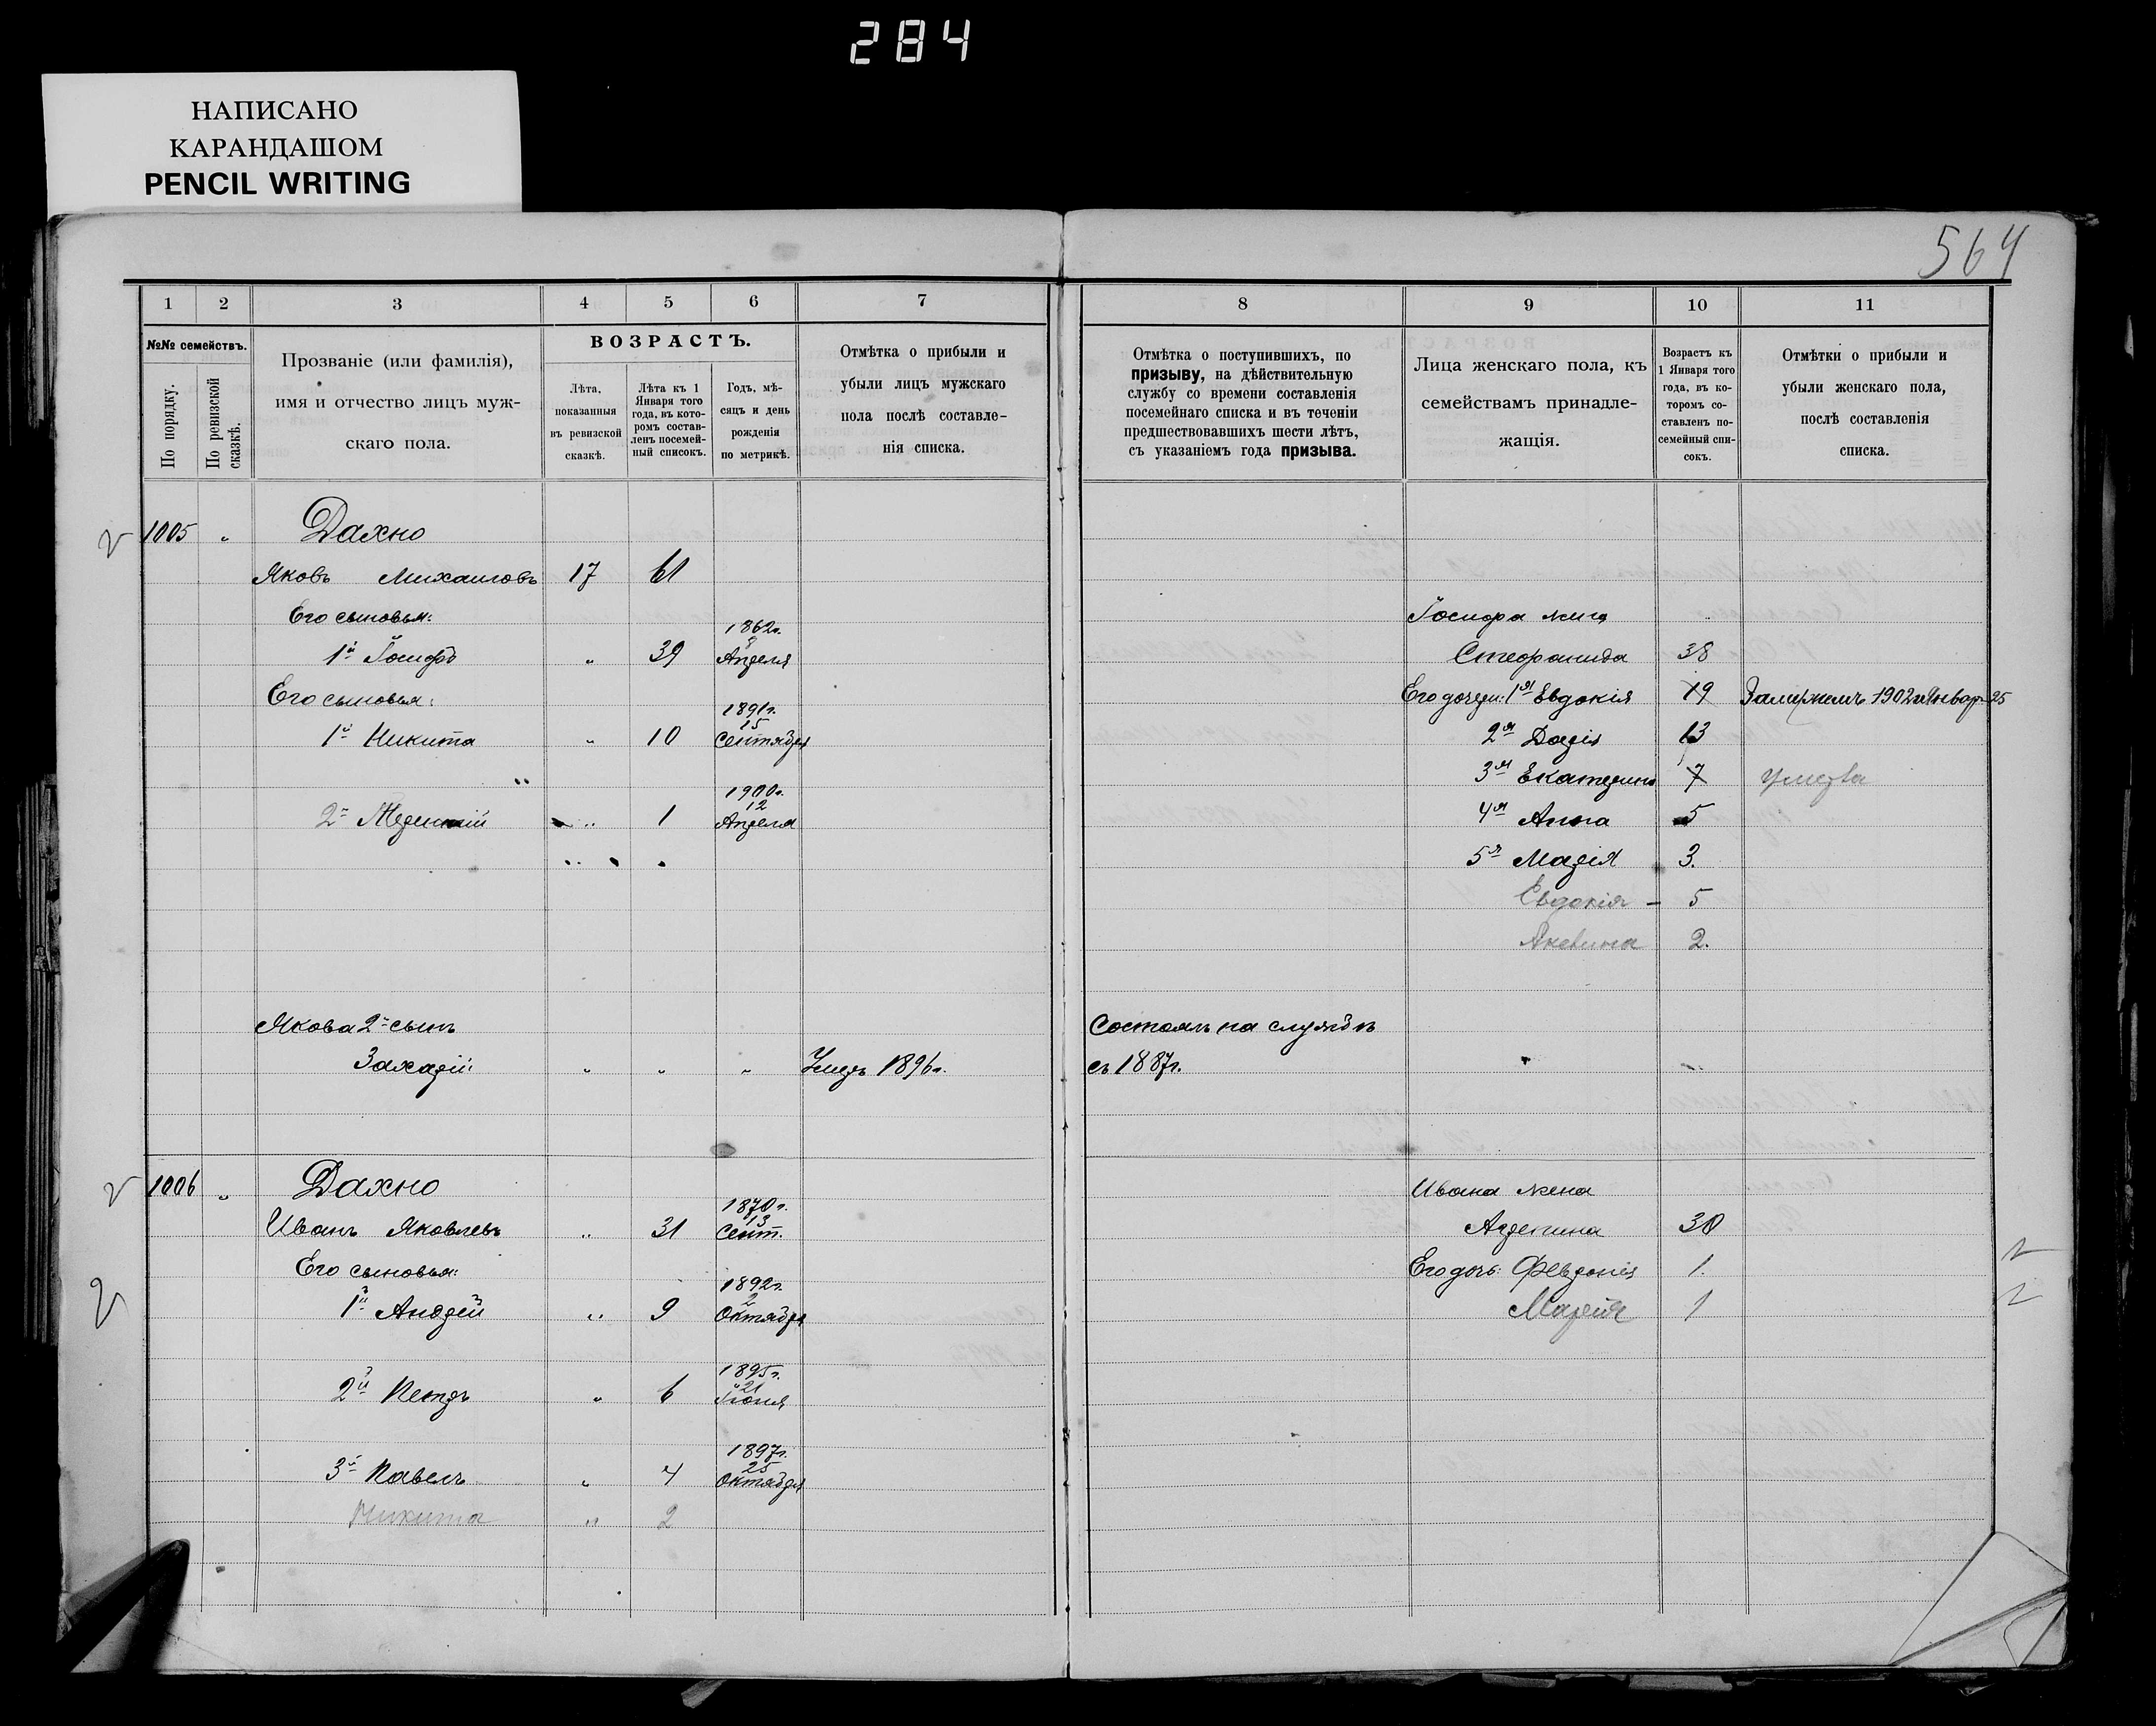 284
НАПИСАНО
КАРАНДАШОМ
PENCIL WRITING
564
1 2 3 4 5 6 7
№№ семействъ.
По порядку.
По ревизской сказкѣ.
Прозваніе (или фамилія),
имя и отчество лицъ муж-
скаго пола.
ВОЗРАСТЪ.
Лѣта,
показанныя
въ ревизской
сказкѣ.
Лѣта къ 1
Января того
года, въ кото-
ромъ состав-
ленъ посемей-
ный списокъ.
Годъ, мѣ-
сяцъ и день
рожденія
по метрикѣ.
Отмѣтка о прибыли и
убыли лицъ мужскаго
пола послѣ составле-
нія списка.
1005 „ Дахно
Яковъ Михаиловъ 17 61
Его сыновья:
1862г.
1й Іосифъ „ 39 Апреля
Его сыновья:
1891г.
15
1й Никита „ 10 Сентября
1900г.
12
2й „ 1 Апреля
Якова 2й сынъ
Захарій „ „ „ Умеръ 1896г.
1006 „ Дахно
1870г.
13
Иванъ Яковлевъ „ 31 Сент.
Его сыновья:
1892г.
2
1й Андрей „ 9 Октября
1895г.
21
2й Петръ „ 6 Іюня
1897г.
25
3й Павелъ „ 4 Октября
Никита „ 2
8 9 10 11
Отмѣтка о поступившихъ, по
призыву, на дѣйствительную
службу со времени составленія
посемейнаго списка и въ теченіи
предшествовавшихъ шести лѣтъ,
съ указаніемъ года призыва.
Лица женскаго пола, къ
семействамъ принадле-
жащія.
Возрастъ къ
1 Января того
года, въ ко-
торомъ со-
ставленъ по-
семейный спи-
сокъ.
Отмѣтки о прибыли и
убыли женскаго пола,
послѣ составленія
списка.
Іосифа жена
Стефанида 38
Его дочери: 1я Евдокія 19 Замужемъ 1902г. Январ. 25
2я Дарія 13
3я Екатерина 7 умерла
4я Анна 5
5я Марія 3.
Евдокія – 5
Акевина 2.
Состоялъ на службѣ
съ 1887г.
Ивана жена
Агрепина 30
Его дочь: Февронія 1.
Марія 1